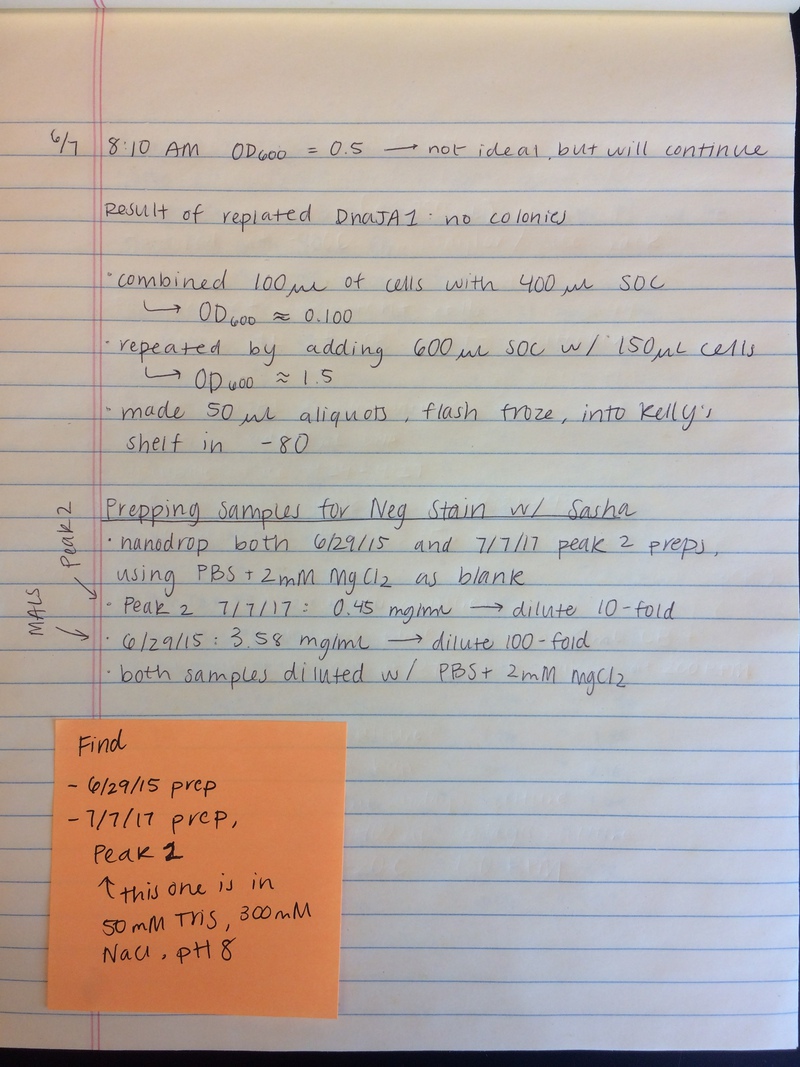 6/7 8:10 AM OD600 = 0.5 → not ideal, but will continue
Result of replated DnaJA1 : no colonies
· combined 100 µL of cells with 400 µL SOC
↳ OD600 ≈ 0.100
· repeated by adding 600 µL SOC w/ 150 µL cells
↳ OD600 ≈ 1.5
· made 50 µL aliquots, flash froze, into Kelly's
shelf in -80
Prepping Samples for Neg Stain w/ Sasha
· nanodrop both 6/29/15 and 7/7/17 peak 2 preps,
using PBS + 2mM MgCl2 as blank
Peak 2
· Peak 2 7/7/17 : 0.45 mg/mL → dilute 10-fold
MALS
· 6/29/15 : 3.58 mg/mL → dilute 100-fold
· both samples diluted w/ PBS + 2mM MgCl2
Find
- 6/29/15 prep
- 7/7/17 prep,
Peak 2
↑ this one is in
50 mM Tris, 300 mM
NaCl, pH 8